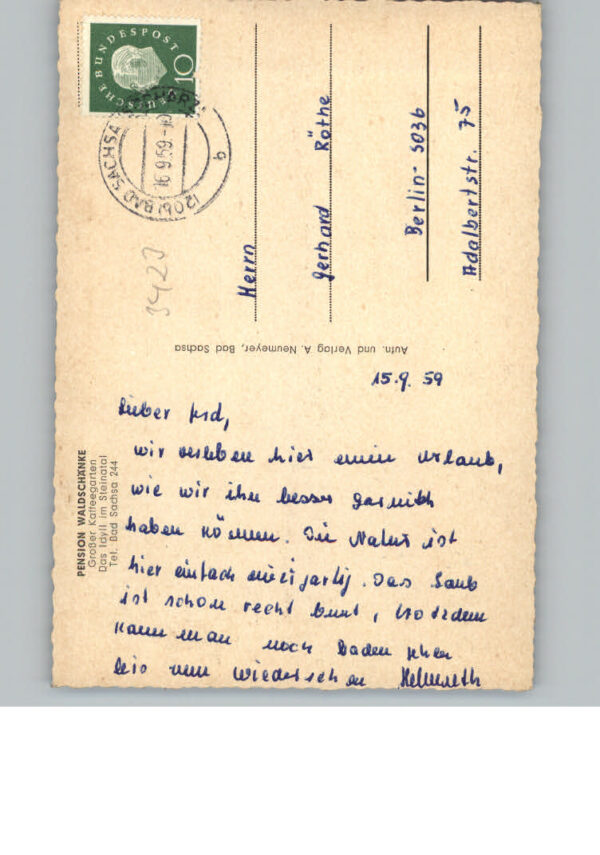 DEUTSCHE BUNDESPOST
10
(20b) BAD SACHSA
16.9.59
b
Herrn
Gerhard Röthe
Berlin-SO36
Adalbertstr. 75
Aufn. und Verlag A. Neumeyer, Bad Sachsa
PENSION WALDSCHÄNKE
Großer Kaffeegarten
Das Idyll im Steinatal
Tel. Bad Sachsa 244
15.9.59
Lieber
wir verleben hier einen Urlaub,
wie wir ihn besser garnicht
haben können. Die Natur ist
hier einfach einzigartig. Das Laub
ist schon recht bunt, trotzdem
kann man noch baden
bis zum Wiedersehen Helmuth